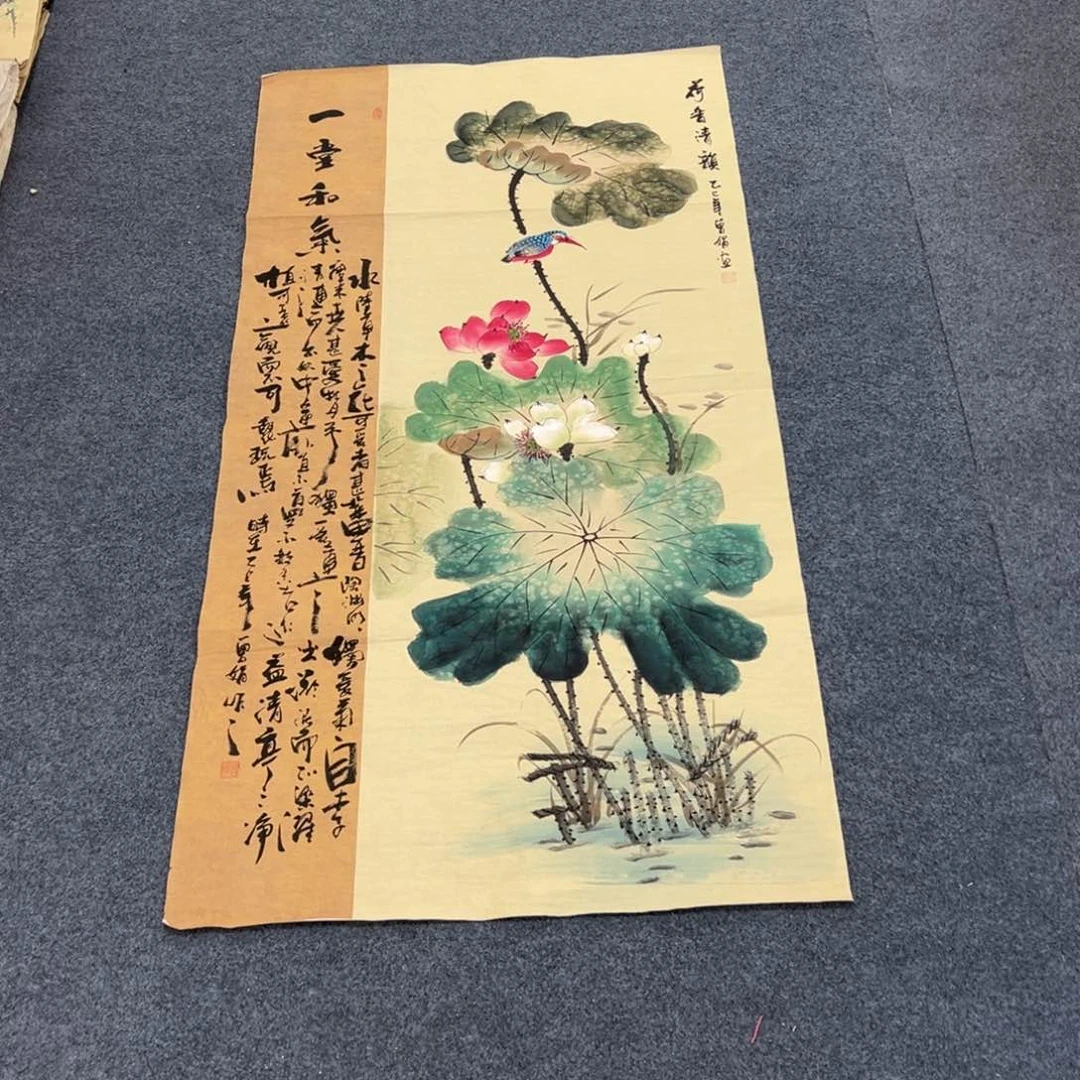 荷香清韻 乙巳年曾娟画
一堂和氣
水陸草木之花可愛者甚蕃晋陶淵明獨愛菊自李
唐来世人甚愛牡丹予獨愛蓮之出淤泥而不染濯
清漣而不妖中通外直不蔓不枝香远益清亭亭净
植可遠觀而不可褻玩焉 時在乙巳年曾娟作之